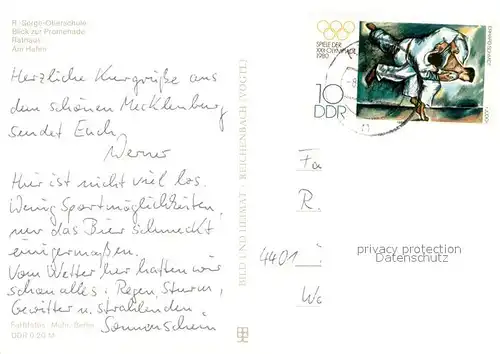 R.-Sorge-Oberschule
Blick zur Promenade
Rathaus
Am Hafen
Herzliche Kurgrüße aus
dem schönen Mecklenburg
sendet Euch
Werner
Hier ist nicht viel los.
Wenig Sportmöglichkeiten,
nur das Bier schmeckt
einigermaßen.
Vom Wetter her hatten wir
schon alles: Regen, Sturm,
Gewitter u. strahlenden
Sonnenschein
Farbfotos: Mohr, Berlin
BILD UND HEIMAT · REICHENBACH (VOGTL)
SPIELE DER
XXII. OLYMPIADE
1980
10
DDR
Fa
R.
4401
privacy protection
Datenschutz